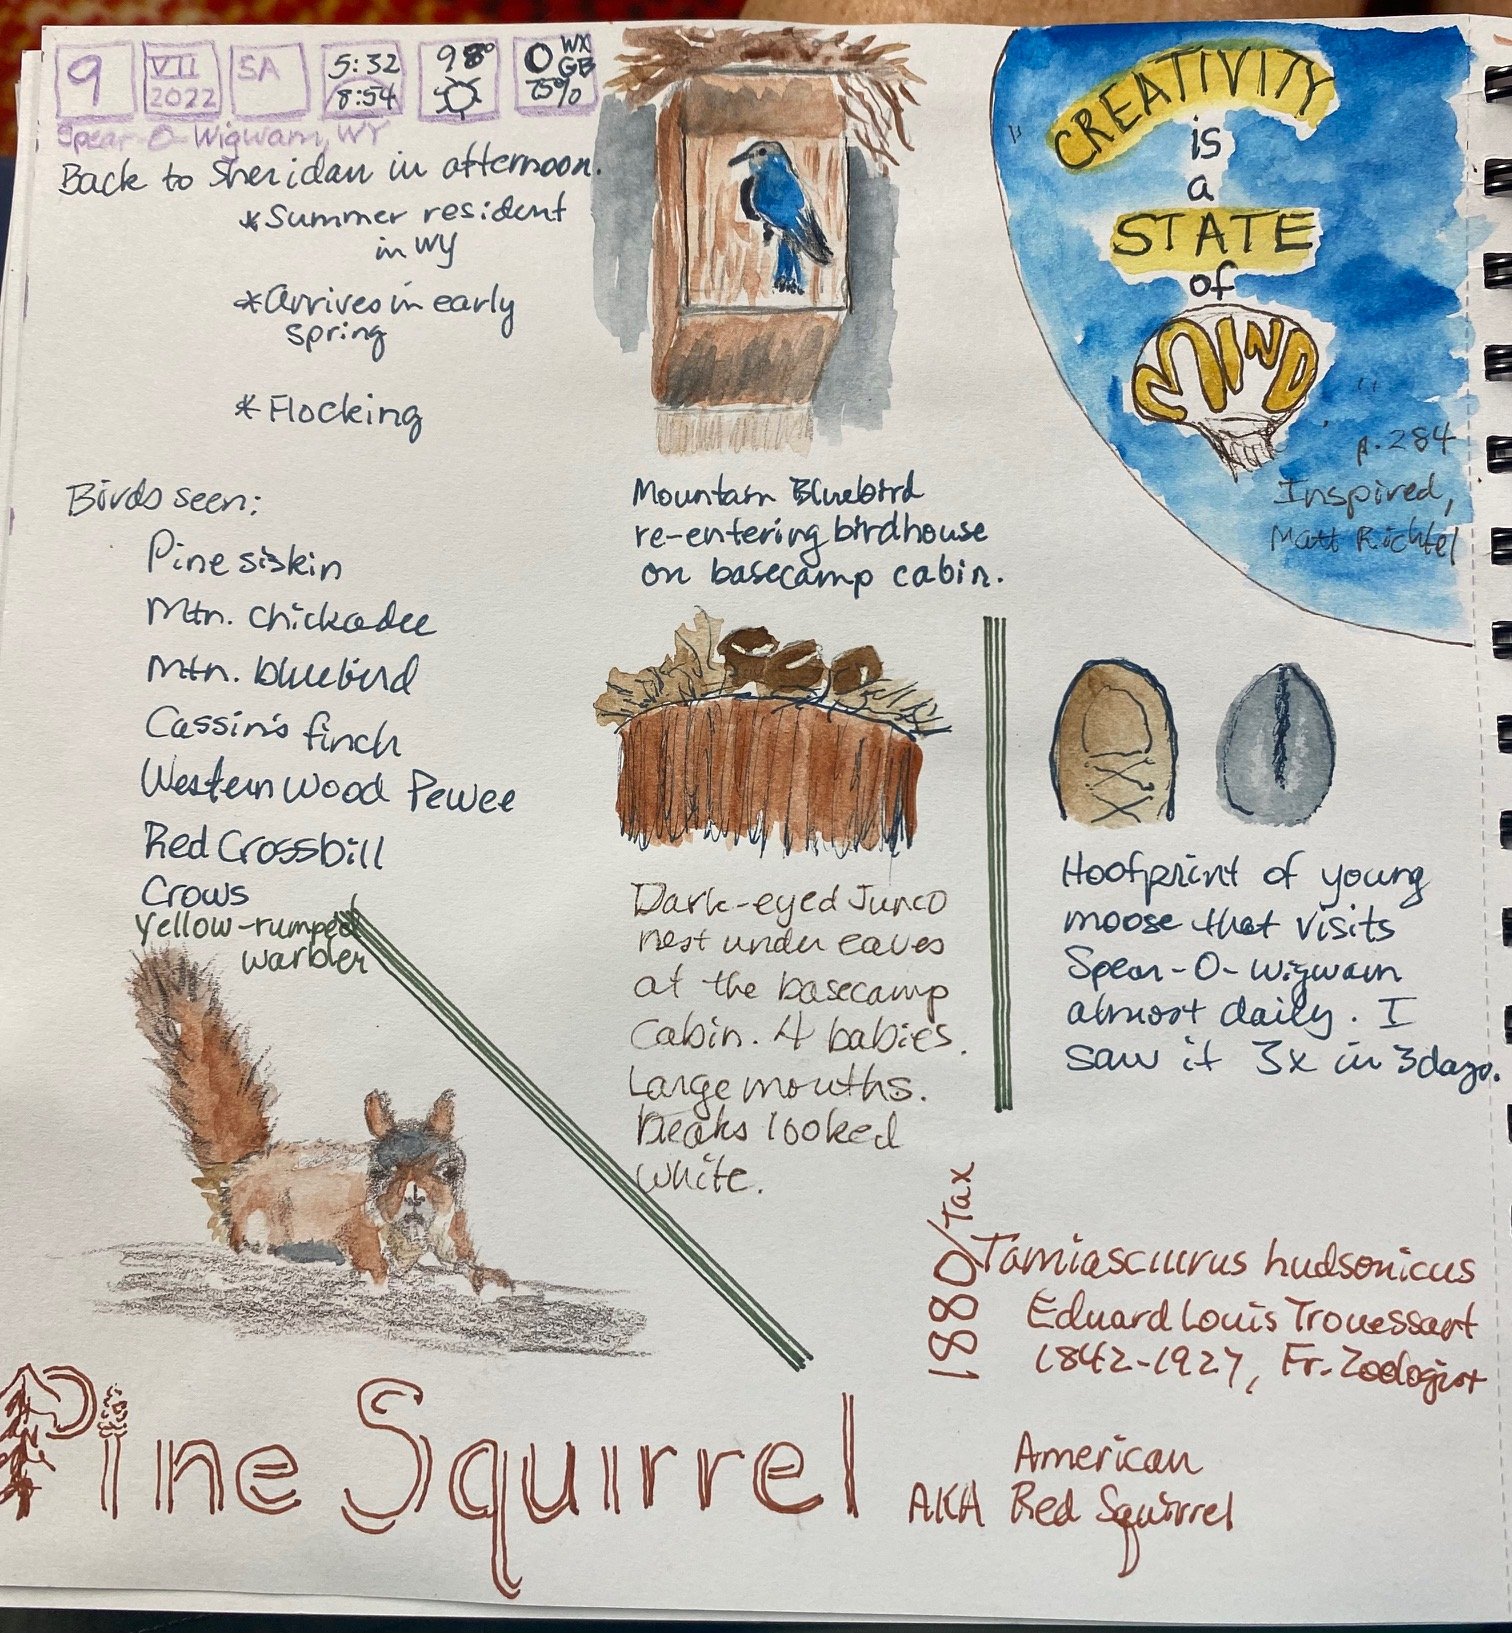 9
VII
2022
SA
5:32
8:54
98°
WX
GB
75%
Spear-O-Wigwam, WY
Back to Sheridan in afternoon.
*Summer resident
in WY
*Arrives in early
spring
*Flocking
Birds seen:
Pine siskin
Mtn. chickadee
Mtn. bluebird
Cassin's finch
Western Wood Pewee
Red Crossbill
Crows
Yellow-rumped
warbler
Mountain Bluebird
re-entering birdhouse
on basecamp cabin.
"CREATIVITY
is
a
STATE
of
MIND"
p.284
Inspired,
Matt Richtel
Dark-eyed Junco
nest under eaves
at the basecamp
Cabin. 4 babies.
Large mouths.
Beaks looked
white.
Hoofprint of young
moose that visits
Spear-O-Wigwam
almost daily. I
saw it 3x in 3days.
1880/Tax
Tamiasciurus hudsonicus
Eduard Louis Trouessart
1842-1927, Fr. Zoologist
Pine Squirrel
AKA American
Red Squirrel